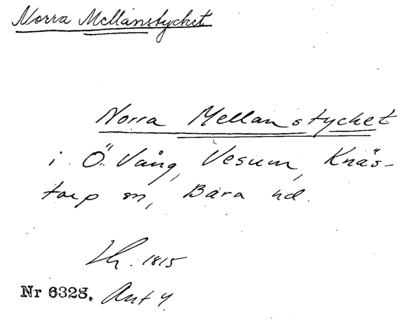 Norra Mellanstycket
Norra Mellanstycket
i Ö. Vång, Vesum, Knäs-
torp sn, Bara hd.
1815
Nr 6328. Akt 4.